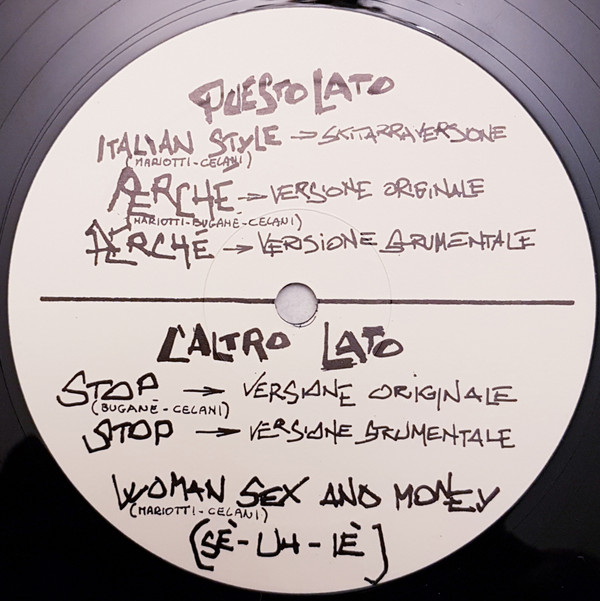 QUESTO LATO
ITALIAN STYLE → SKITARRAVERSIONE
(MARIOTTI-CELANI)
PERCHÉ → VERSIONE ORIGINALE
(MARIOTTI-BUGANÈ-CELANI)
PERCHÉ → VERSIONE STRUMENTALE
L'ALTRO LATO
STOP → VERSIONE ORIGINALE
(BUGANÈ-CELANI)
STOP → VERSIONE STRUMENTALE
WOMAN SEX AND MONEY
(MARIOTTI-CELANI)
(SÈ-UH-IÈ)